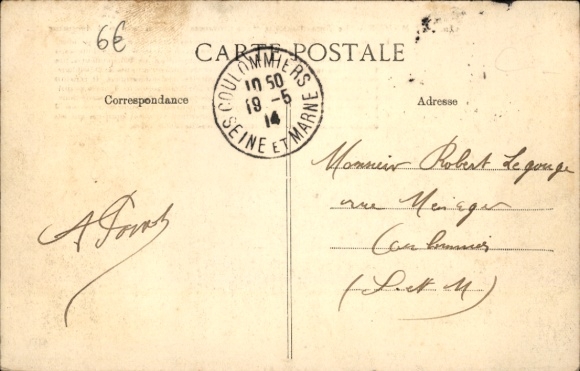 6€
CARTE POSTALE
COULOMMIERS
10 50
19 -5
14
SEINE ET MARNE
Correspondance
Adresse
Monsieur Robert Legouge
rue
Coulommiers
(S. et M)
A